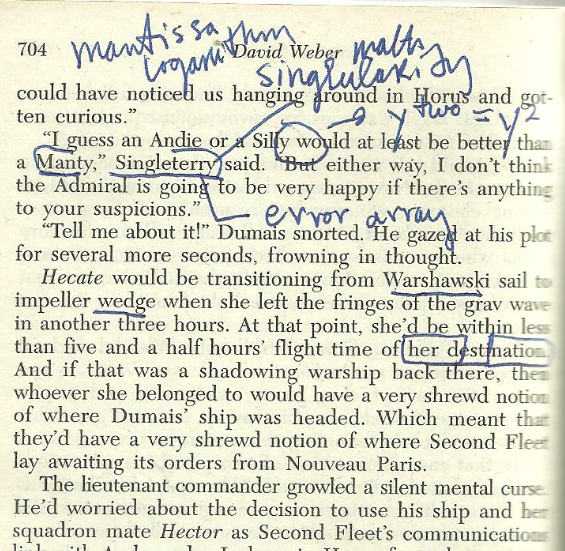 mantissa
logarithm
math
singlularity
704
David Weber
could have noticed us hanging around in Horus and got-
ten curious."
y two = y2
"I guess an Andie or a Silly would at least be better than
a Manty," Singleterry said. "But either way, I don't think
the Admiral is going to be very happy if there's anything
to your suspicions."
error array
"Tell me about it!" Dumais snorted. He gazed at his plot
for several more seconds, frowning in thought.
Hecate would be transitioning from Warshawski sail to
impeller wedge when she left the fringes of the grav wave
in another three hours. At that point, she'd be within less
than five and a half hours' flight time of her destination.
And if that was a shadowing warship back there, then
whoever she belonged to would have a very shrewd notion
of where Dumais' ship was headed. Which meant that
they'd have a very shrewd notion of where Second Fleet
lay awaiting its orders from Nouveau Paris.
The lieutenant commander growled a silent mental curse.
He'd worried about the decision to use his ship and her
squadron mate Hector as Second Fleet's communications